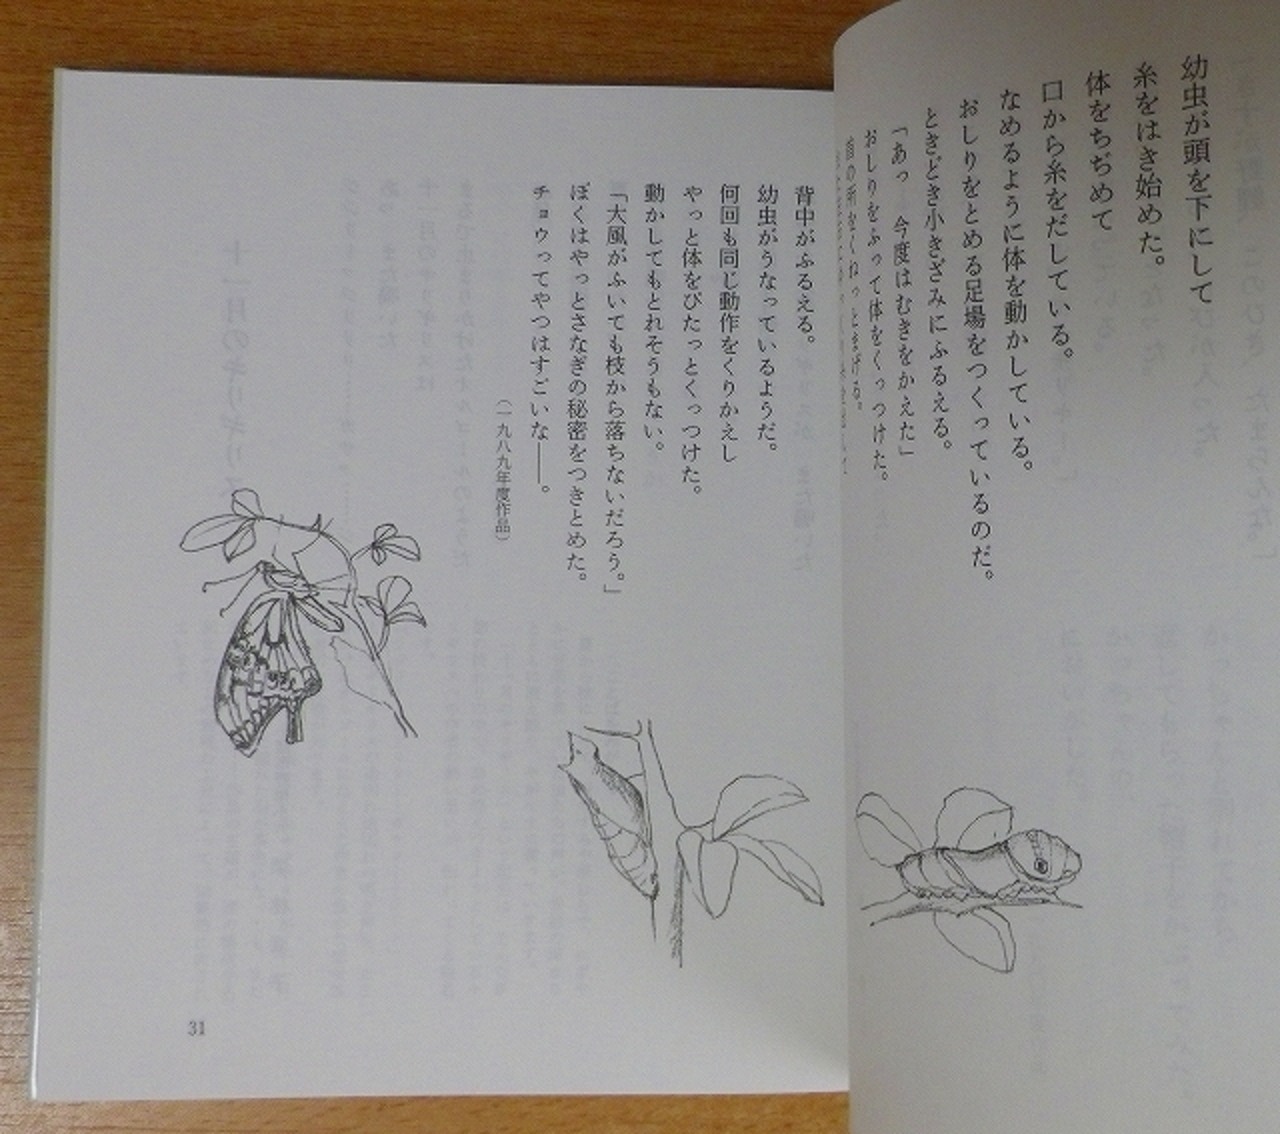 幼虫が頭を下にして
糸をはき始めた。
体をちぢめて
口から糸をだしている。
なめるように体を動かしている。
おしりをとめる足場をつくっているのだ。
ときどき小きざみにふるえる。
「あっ 今度はむきをかえた」
おしりをふって体をくっつけた。
首の所をくねっとまげる。
背中がふるえる。
幼虫がうなっているようだ。
何回も同じ動作をくりかえし
やっと体をぴたっとくっつけた。
動かしてもとれそうもない。
「大風がふいても枝から落ちないだろう。」
ぼくはやっとさなぎの秘密をつきとめた。
チョウってやつはすごいな――。
(一九八九年度作品)
31